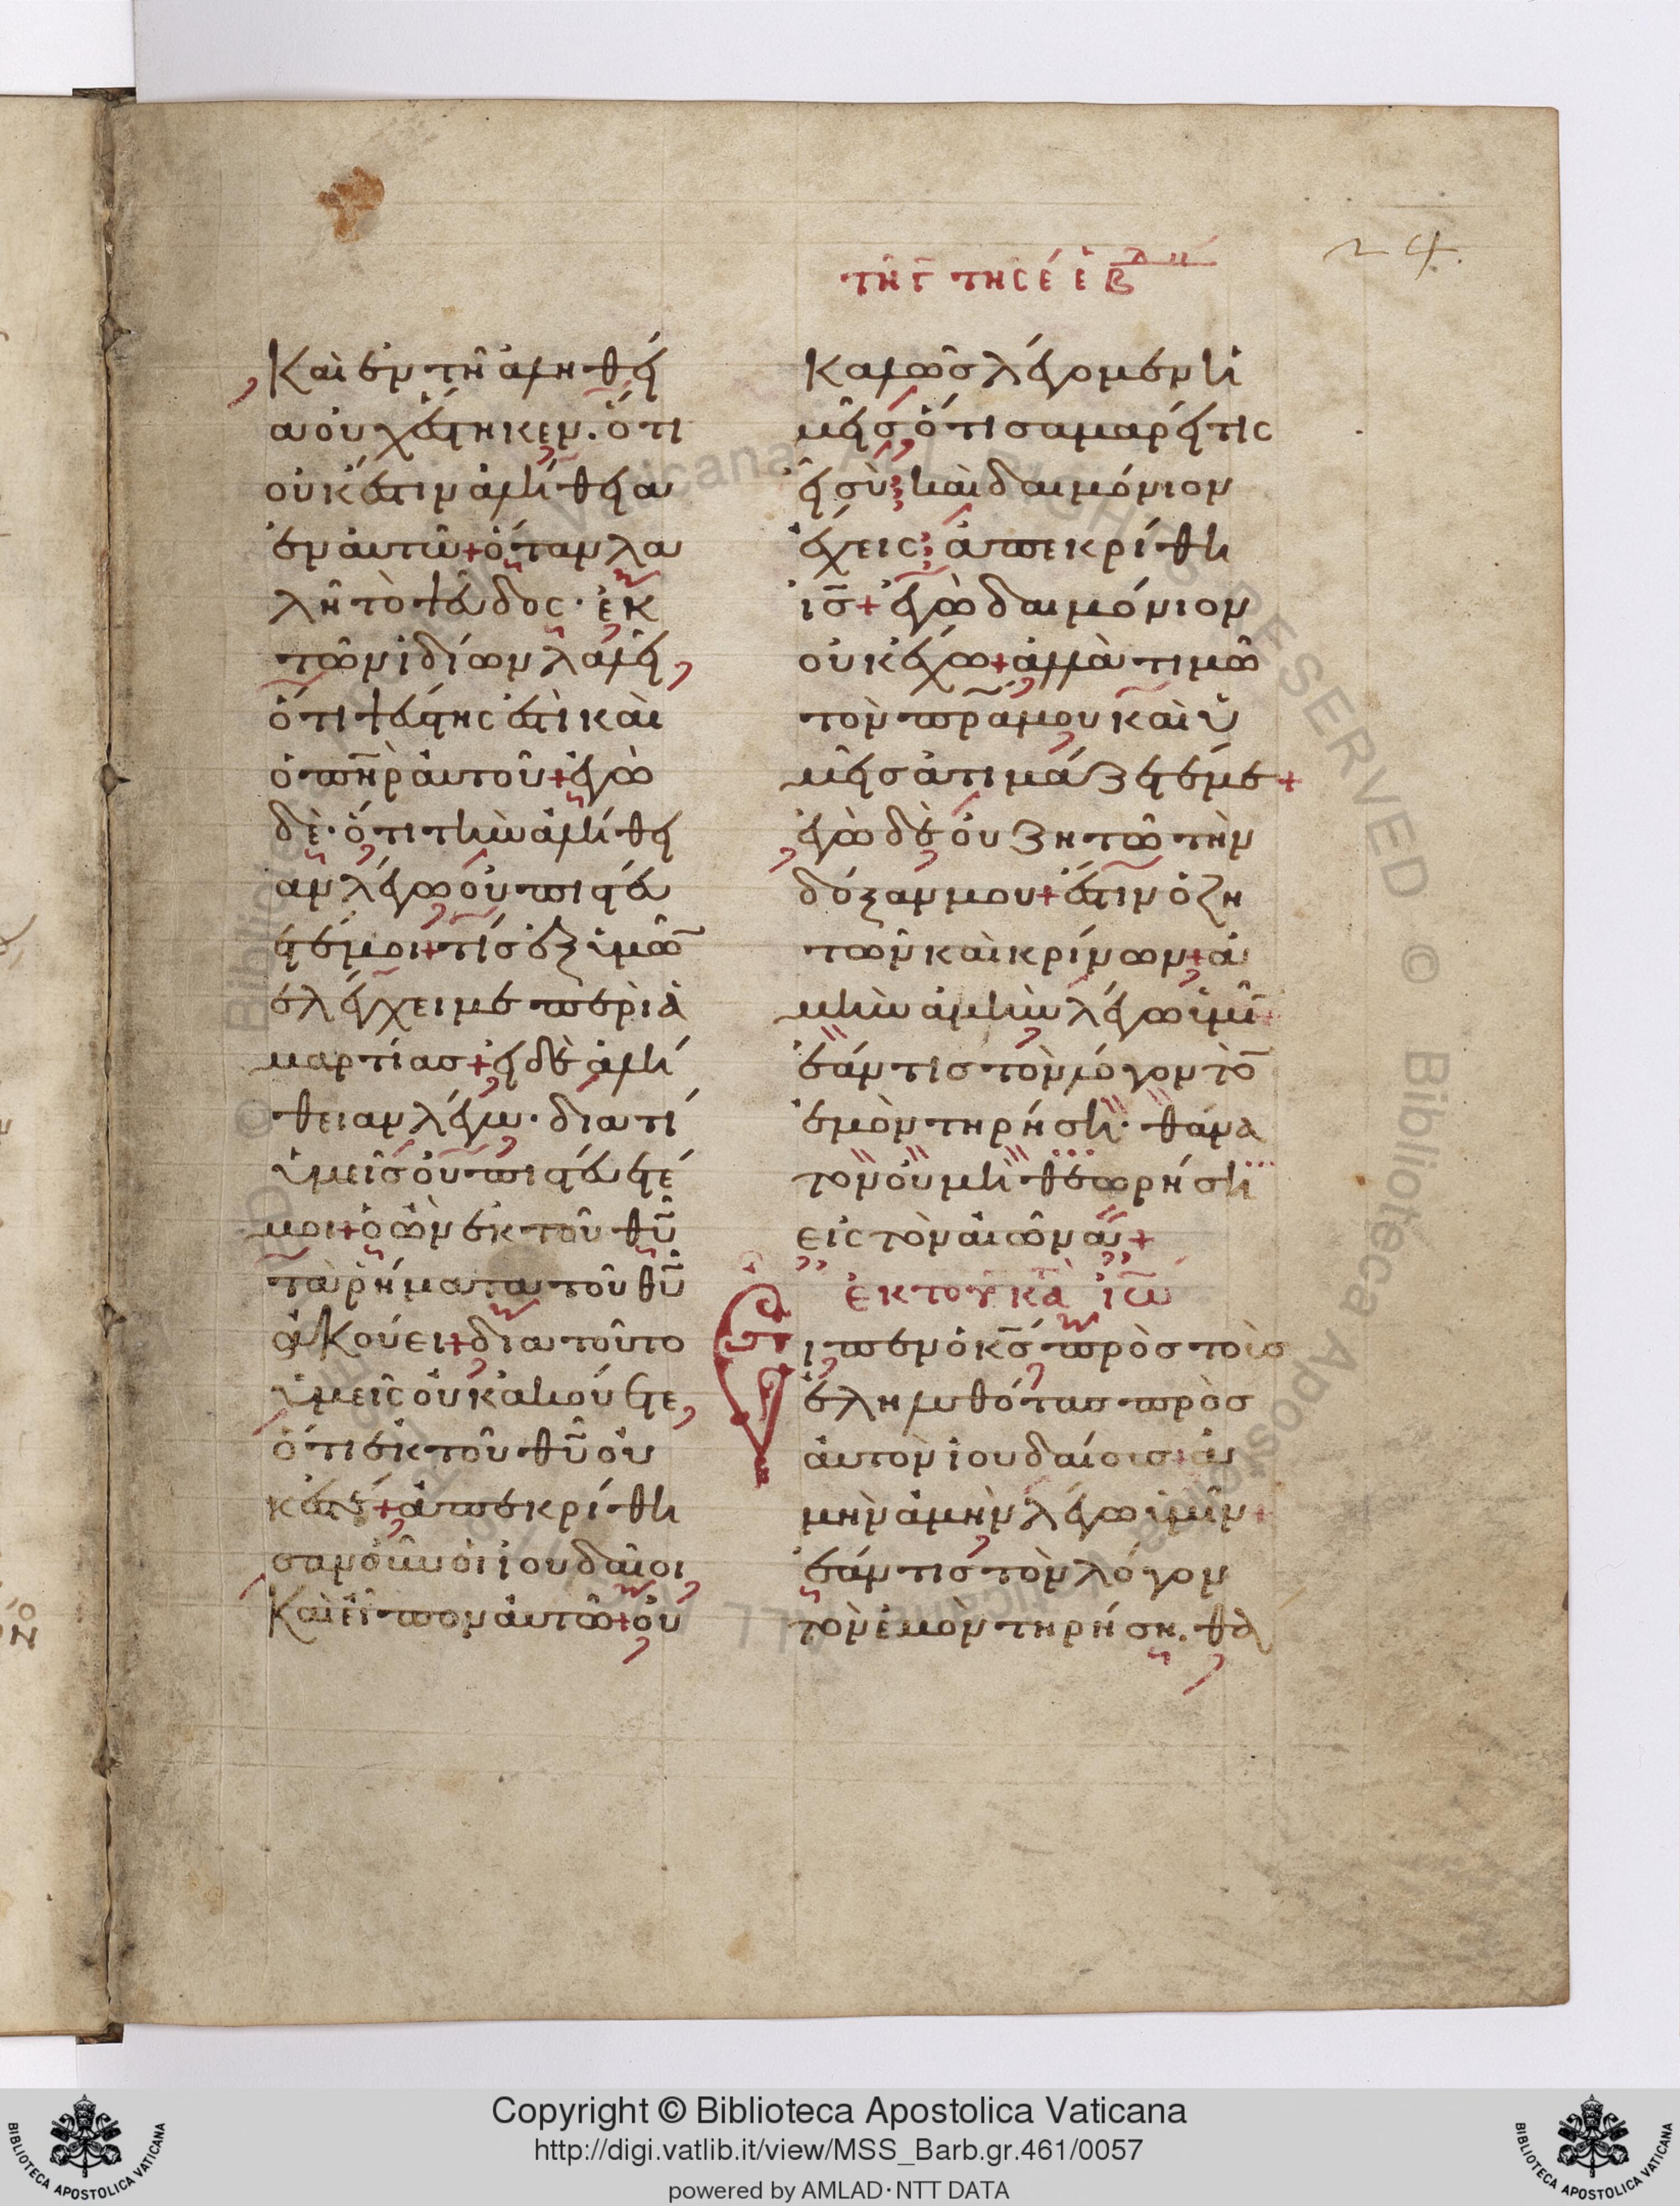 24.
καὶ ἐν τῆ ἀληθεί
α οὐχ ἕστηκεν. ὅτι
οὐκ ἔστιν ἀλήθεια
ἐν ἀυτῶ + ὅταν λα
λῆ τὸ ψεῦδος · ἐκ
τῶν ἰδίων λαλεῖ,
ὅτι ψεύστης ἐστὶ καὶ
ὁ πη̅ρ ἀυτοῦ + ἐγὼ
δὲ · ὅτι τὴν ἀλήθει
αν λέγω οὐ πιστεύ
ετέ μοι + τίς ἐξ ὑμῶ̅
ἐλέγχει με περὶ ἁ
μαρτίας + εἰ δὲ ἀλή
θειαν λέγω · διατί
ὑμεῖς οὐ πιστεύετέ
μοι + ὁ ὢν ἐκ τοῦ θυ̅
τὰ ῥήματα τοῦ θυ̅
ἀκούει + διατοῦτο
ὑμεῖς οὐκ ἀκούετε,
ὅτι ἐκ τοῦ θυ̅ οὐ
κ ἐστέ + ἀπεκρίθη
σαν οὖν οἱ ἰουδαῖοι
καὶ εἶπον ἀυτῶ + οὐ
τῆ γ τῆς ε ἑβδ
καλῶς λέγομεν ἡ
μεῖς ὅτι σαμαρείτις
εἶ σὺ; καὶ δαιμόνιον
ἔχεις; ἀπεκρίθη
ις̅ + ἐγὼ δαιμόνιον
οὐκ ἔχω + ἀλλὰ τιμῶ
τὸν πρ̅α μου καὶ ὑ
μεῖς ἀτιμάζετέ με +
ἐγὼ δὲ οὐ ζητῶ τὴν
δόξαν μου + ἔστιν ὁ ζη
τῶν καὶ κρίνων + ἀ
μὴν ἀμὴν λέγω ὑμῖ̅ +
ἐάν τις τὸν λόγον τὸ̅
ἐμὸν τηρήση · θάνα
τον οὐ μὴ θεωρήση
εἰς τὸν αἰῶνα +
ἐκ τοῦ κα̅ ἰω̅
Εἶπεν ὁ κς̅ πρὸς τοὺς
ἐληλυθότας πρὸς
ἀυτὸν ἰουδαίους + ἀ
μὴν ἀμὴν λέγω ὑμῖν +
ἐάν τις τὸν λόγον
τὸν ἐμὸν τηρήση. θά
Copyright © Biblioteca Apostolica Vaticana
http://digi.vatlib.it/view/MSS_Barb.gr.461/0057
powered by AMLAD·NTT DATA
BIBLIOTECA APOSTOLICA VATICANA
BIBLIOTECA APOSTOLICA VATICANA